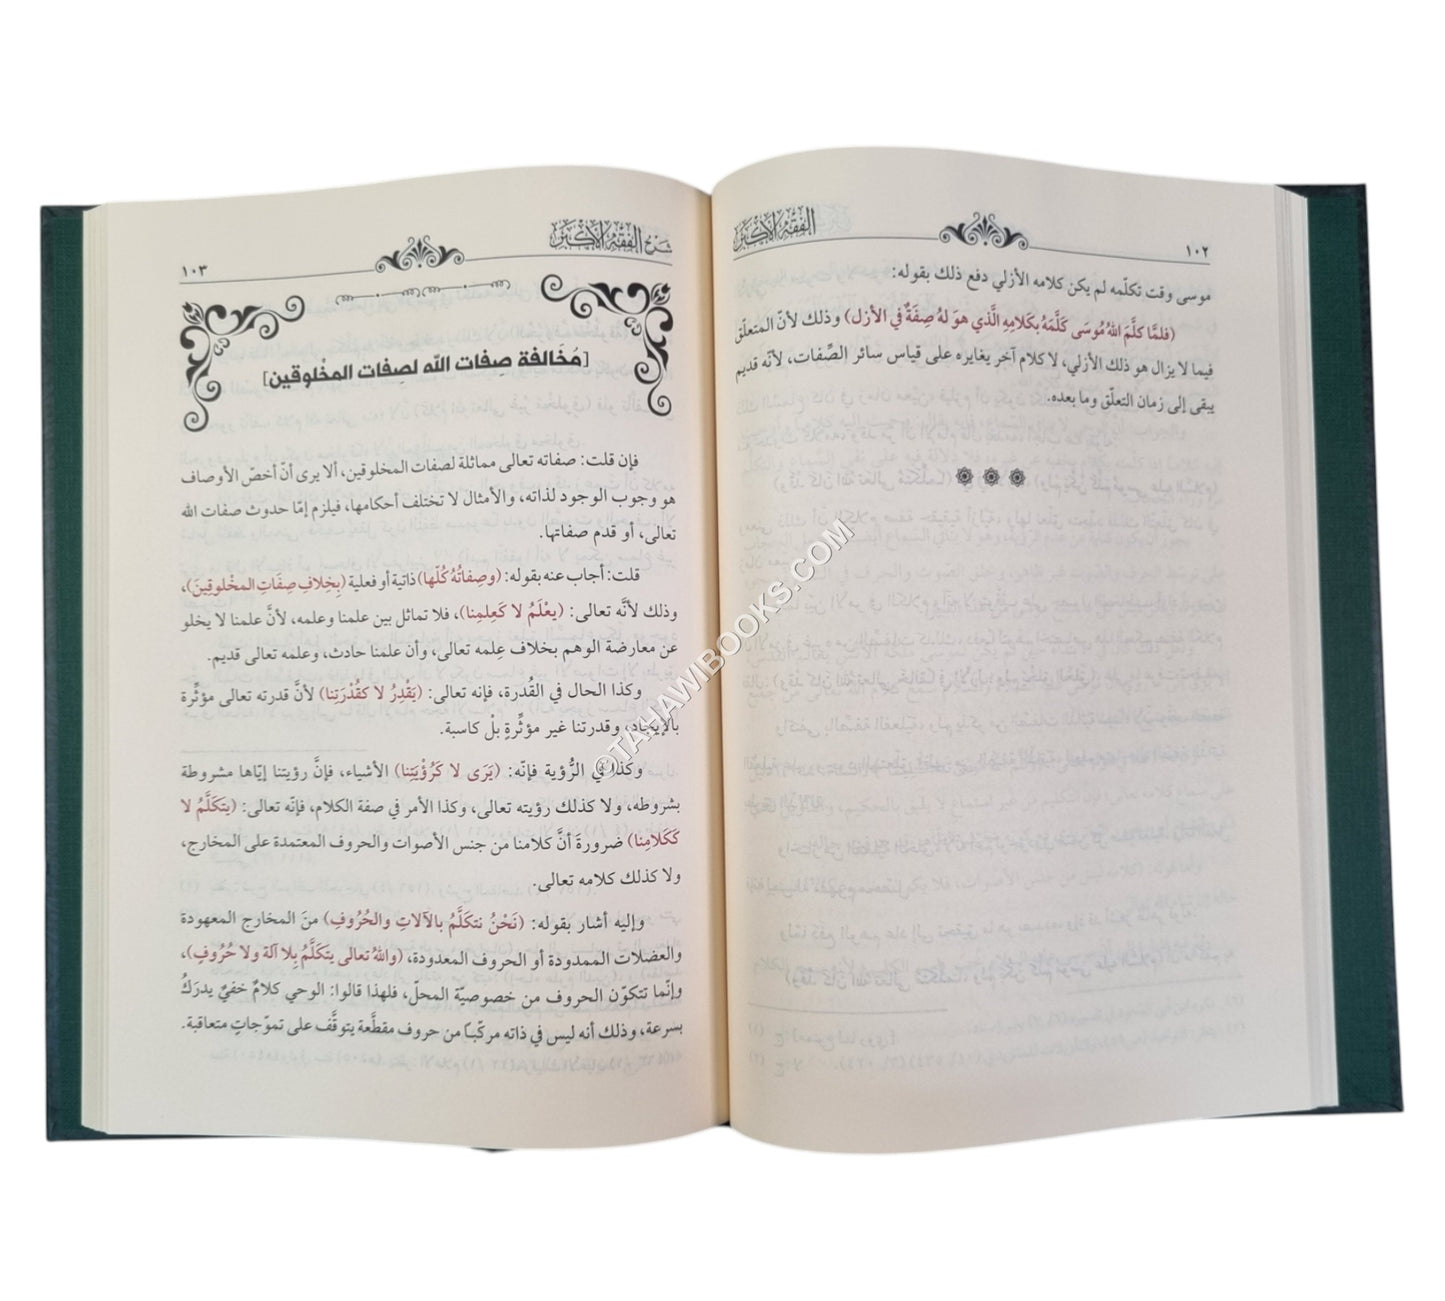 الفقه الأكبر
١٠٢
موسى وقت تكلّمه لم يكن كلامه الأزلي دفع ذلك بقوله:
(فلمَّا كلَّمَ اللهُ مُوسَى كَلَّمَهُ بكَلامِهِ الَّذي هوَ لهُ صِفَةٌ في الأزل) وذلك لأنّ المتعلّق
فيما لا يزال هو ذلك الأزلي، لا كلام آخر يغايره على قياس سائر الصِّفات، لأنّه قديم
يبقى إلى زمان التعلّق وما بعده.
شرح الفقه الأكبر
١٠٣
[مُخَالفة صِفات الله لصِفات المخْلوقين]
فإن قلت: صفاته تعالى مماثلة لصفات المخلوقين، ألا يرى أنّ أخصّ الأوصاف
هو وجوب الوجود لذاته، والأمثال لا تختلف أحكامها، فيلزم إمّا حدوث صفات الله
تعالى، أو قدم صفاتها.
قلت: أجاب عنه بقوله: (وصِفاتُهُ كُلّها) ذاتية أو فعلية (بِخِلافِ صِفَاتِ المخْلوقِينَ)،
وذلك لأنَّه تعالى: (يعْلَمُ لا كَعِلمِنا)، فلا تماثل بين علمنا وعلمه، لأنَّ علمنا لا يخلو
عن معارضة الوهم بخلاف عِلمه تعالى، وأن علمنا حادث، وعلمه تعالى قديم.
وكذا الحال في القُدرة، فإنه تعالى: (يَقْدِرُ لا كقُدْرَتِنا) لأنَّ قدرته تعالى مؤثِّرة
بالإيجاد، وقدرتنا غير مؤثِّرةٍ بلْ كاسبة.
وكذا في الرُّؤية فإنّه: (يَرَى لا كَرُؤْيَتِنا) الأشياء، فإنَّ رؤيتنا إيّاها مشروطة
بشروطه، ولا كذلك رؤيته تعالى، وكذا الأمر في صفة الكلام، فإنّه تعالى: (يتكَلَّمُ لا
كَكَلامِنا) ضرورةَ أنَّ كلامنا من جنس الأصوات والحروف المعتمدة على المخارج،
ولا كذلك كلامه تعالى.
وإليه أشار بقوله: (نَحْنُ نتكَلَّمُ بالآلاتِ والحُرُوفِ) منَ المخارج المعهودة
والعضلات الممدودة أو الحروف المعدودة، (واللهُ تعالى يتكَلَّمُ بِلا آلة ولا حُرُوفٍ)،
وإنّما تتكوّن الحروف من خصوصيّة المحلّ، فلهذا قالوا: الوحي كلامٌ خفيٌ يدركُ
بسرعة، وذلك أنه ليس في ذاته مركّبًا من حروف مقطَّعة يتوقَّف على تموّجاتٍ متعاقبة.
©TAHAWIBOOKS.COM